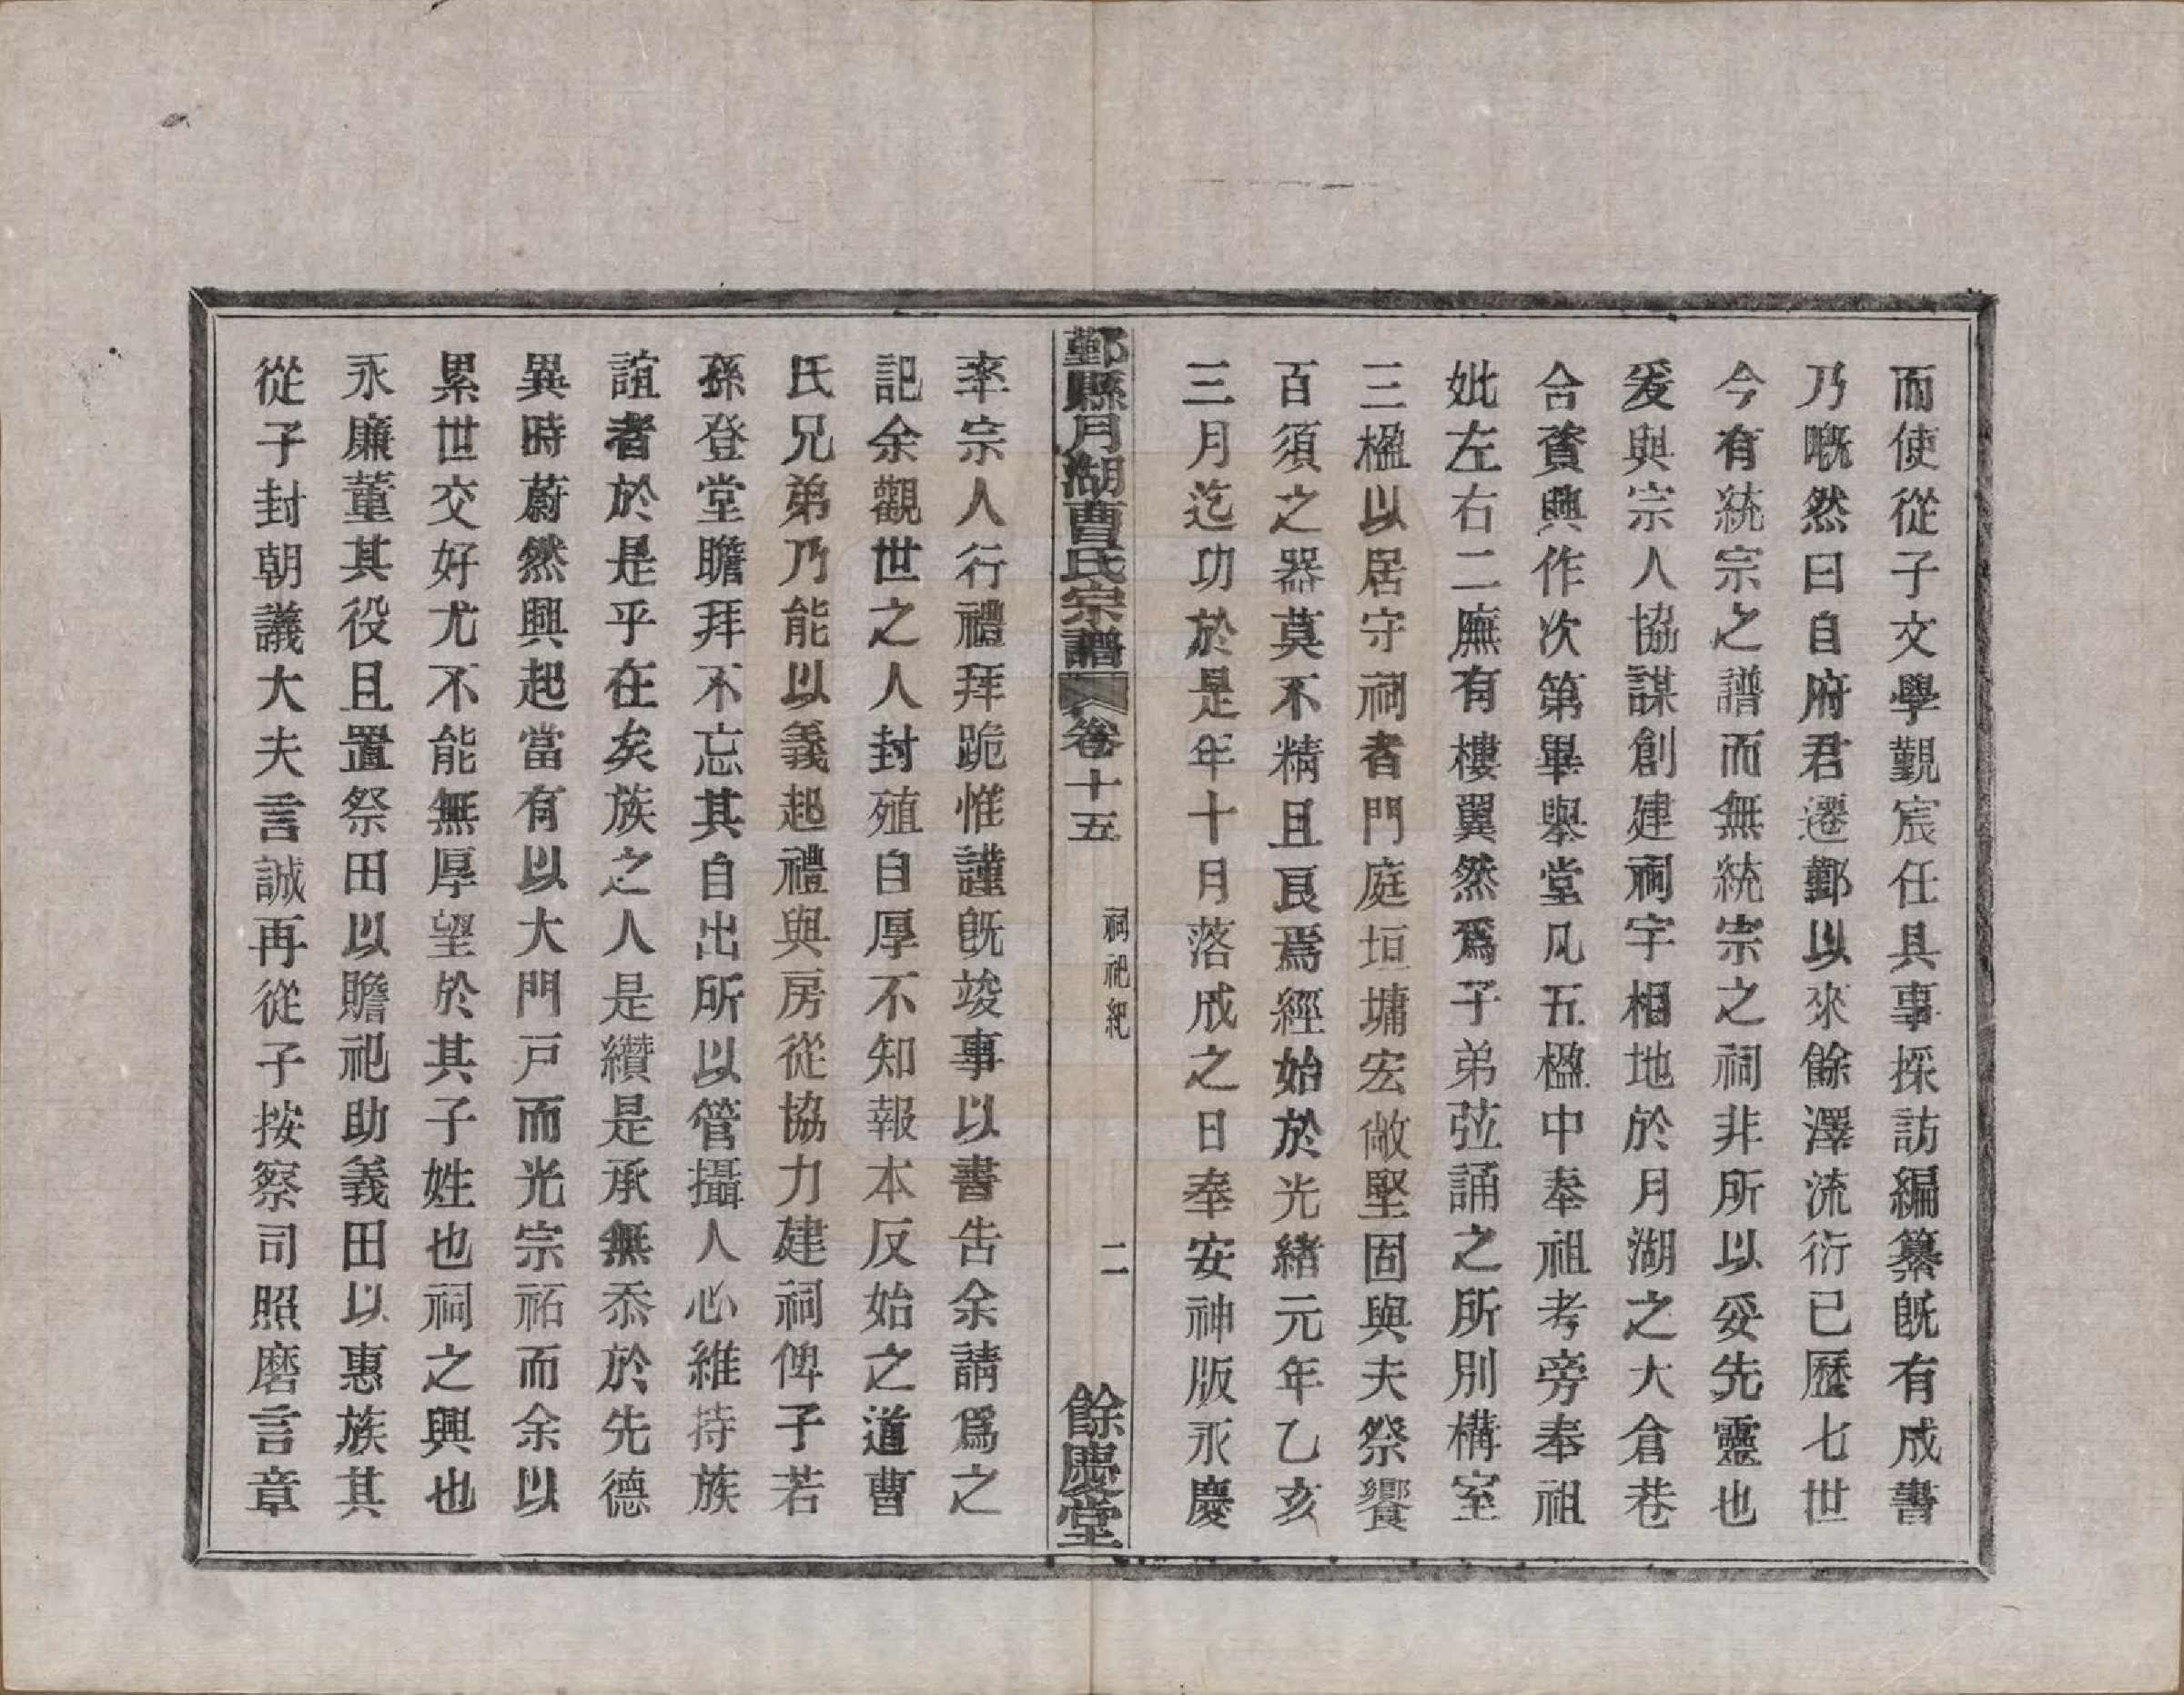 而使從子文學覲宸任具事採訪編纂旣有成書
乃嘅然曰自府君遷鄞以來餘澤流衍已歷七世
今有統宗之譜而無統宗之祠非所以妥先靈也
爰與宗人協謀創建祠宇相地於月湖之大倉巷
合貲興作次第畢舉堂凡五楹中奉祖考旁奉祖
妣左右二廡有樓翼然爲子弟弦誦之所別構室
三楹以居守祠者門庭垣墉宏敞堅固與夫祭饗
百須之器莫不精且良焉經始於光緒元年乙亥
三月迄功於是年十月落成之日奉安神版永慶
鄞縣月湖曹氏宗譜 卷十五 祠祀紀 二 餘慶堂
率宗人行禮拜跪惟謹旣竣事以書告余請爲之
記余觀世之人封殖自厚不知報本反始之道曹
氏兄弟乃能以義起禮與房從協力建祠俾子若
孫登堂瞻拜不忘其自出所以管攝人心維持族
誼者於是乎在矣族之人是纘是承無忝於先德
異時蔚然興起當有以大門戸而光宗祏而余以
累世交好尤不能無厚望於其子姓也祠之興也
永廉董其役且置祭田以贍祀助義田以惠族其
從子封朝議大夫言誠再從子按察司照磨言章